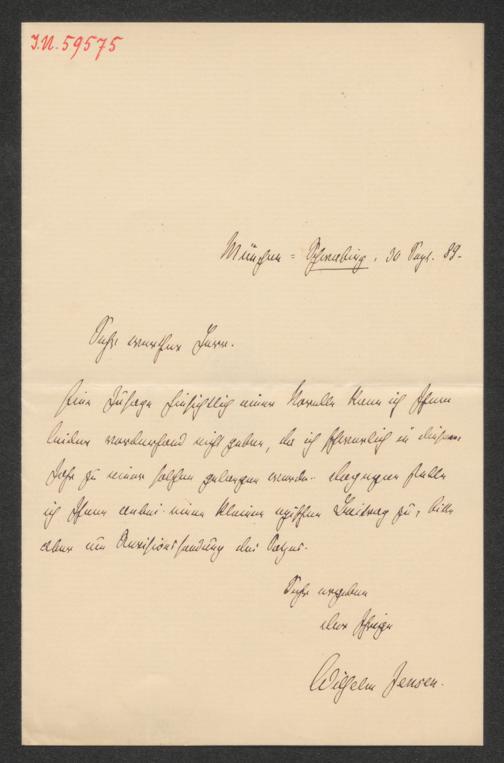 I.N. 59575
München = Schwabing, 30 Sept. 89.
Sehr werther Herr.
Eine Zusage hinsichtlich einer Novelle kann ich Ihnen
leider vorderhand nicht geben, da ich schwerlich in diesem
Jahr zu einer solchen gelangen werde. Dagegen stelle
ich Ihnen anbei einen kleinen epischen Beitrag zu, bitte
aber um Revisionssendung des Satzes.
Sehr ergeben
der Ihrige
Wilhelm Jensen.